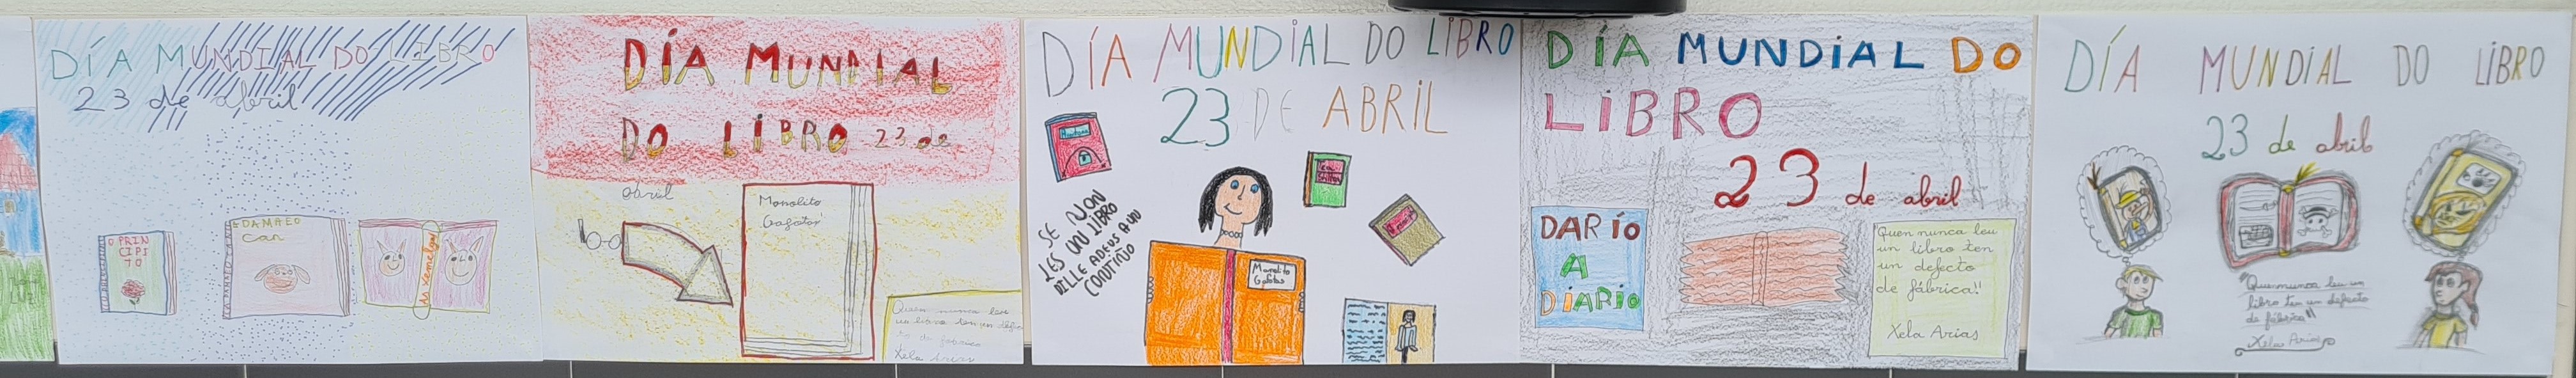 DÍA MUNDIAL DO LIBRO
23 de abril
O PRIN
CIPI
TO
can
As xemelgas
DÍA MUNDIAL
DO LIBRO 23 de
abril
Manolito
Gafotas
Quen nunca leu
un libro ten un defe
de fábrica
Xela Arias
DÍA MUNDIAL DO LIBRO
23 DE ABRIL
SE NON
LES UN LIBRO
DILLE ADEUS A UN
CONTIÑO
Manolito
Gafotas
DÍA MUNDIAL DO
LIBRO
23 de abril
DARÍO
A
DIARIO
Quen nunca leu
un libro ten
un defecto
de fábrica!!
Xela Arias
DÍA MUNDIAL DO LIBRO
23 de abril
"Quen nunca leu un
libro ten un defecto
de fábrica"
Xela Arias